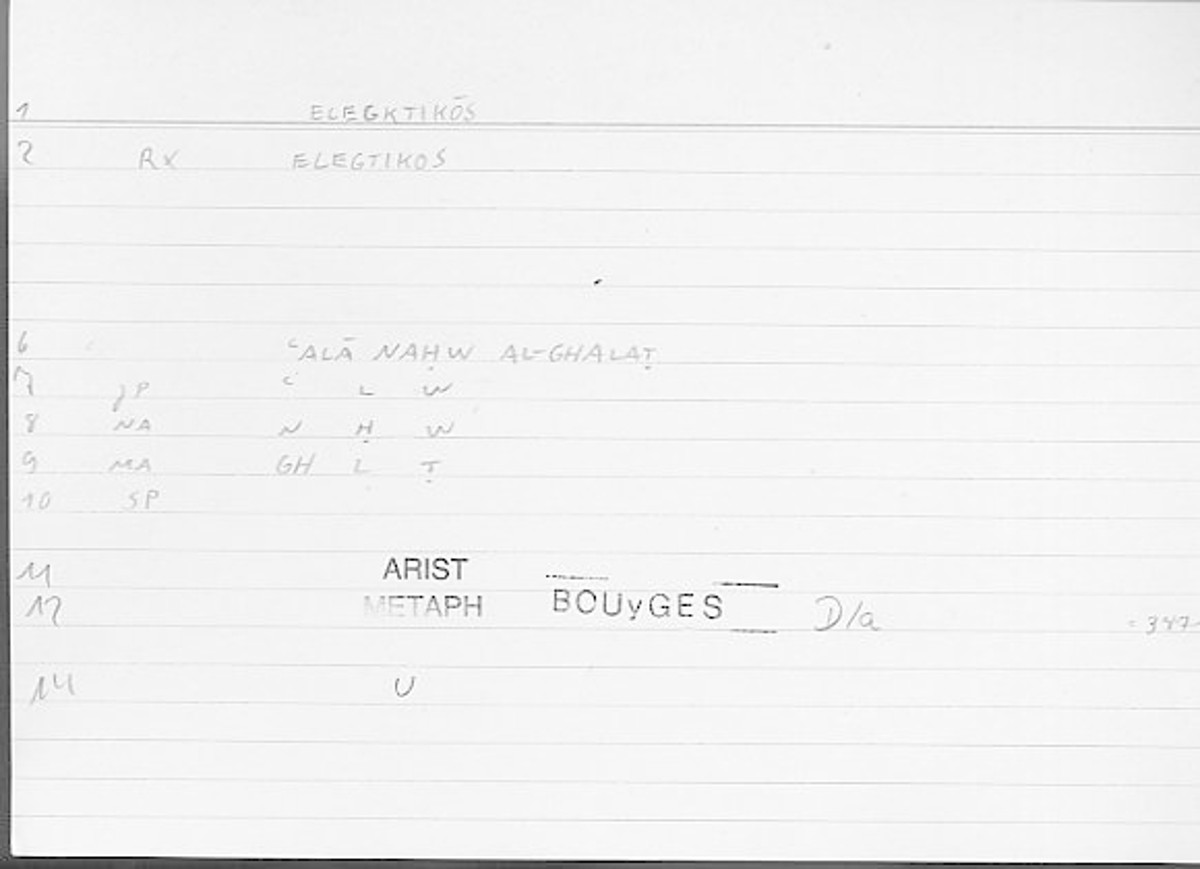 1 ELEGKTIKŌS
2 RX ELEGTIKOS
6 ʿALĀ NAḤW AL-GHALAṬ
7 JP ʿ L W
8 NA N Ḥ W
9 MA GH L Ṭ
10 SP
11 ARIST
12 METAPH BOUyGES D/a = 347
14 U